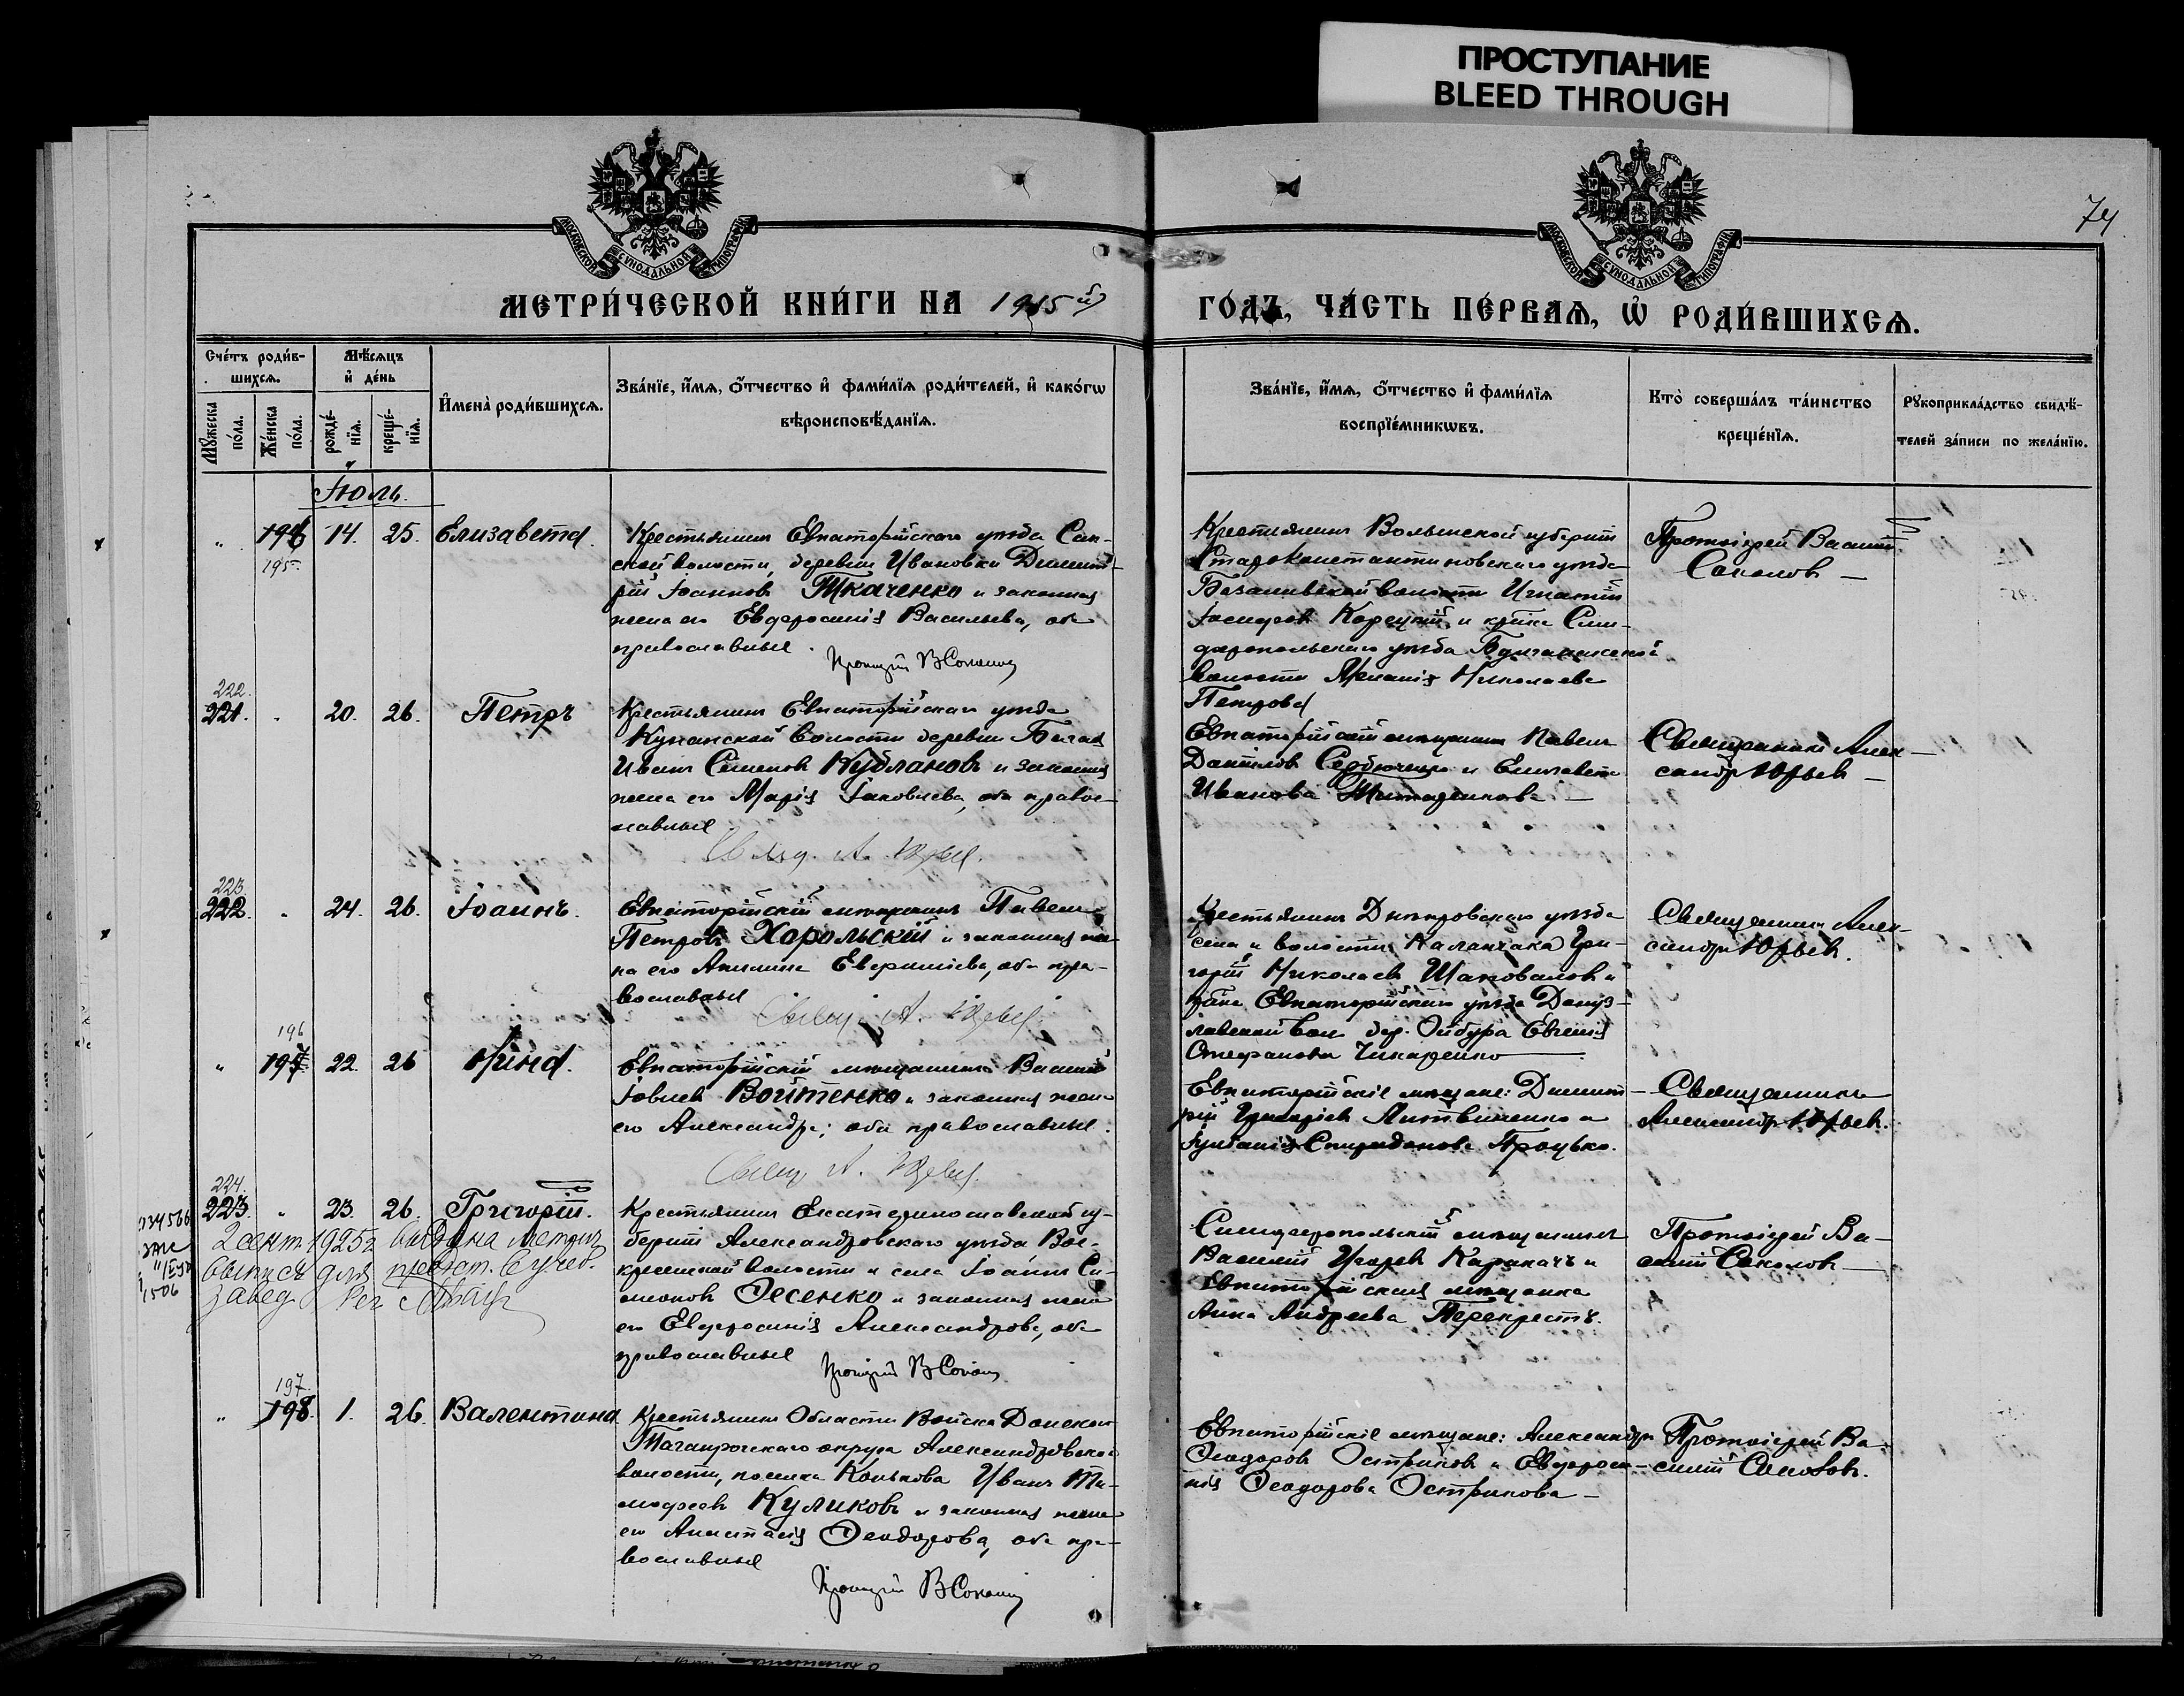 ПРОСТУПАНИЕ
BLEED THROUGH
74
МОСКОВСКОЙ СѴНОДАЛЬНОЙ ТИПОГРАФІИ
МОСКОВСКОЙ СѴНОДАЛЬНОЙ ТИПОГРАФІИ
МЕТРИ́ЧЕСКОЙ КНИ́ГИ НА 1915й
ГО́ДЪ, ЧА́СТЬ ПЕ́РВАѦ, Ѡ҆ РОДИ́ВШИХСѦ.
Сче́тъ роди́в-
шихсѧ.
Мꙋжеска по́ла.
Же́нска по́ла.
Мѣ́сѧцъ
и҆ де́нь
рожде́-
нїѧ.
креще́-
нїѧ.
И҆мена̀ роди́вшихсѧ.
Зва́нїе, и҆́мѧ, ѻ҆́тчество и҆ фами́лїѧ роди́телей, и҆ како́гѡ
вѣроисповѣ́данїѧ.
Зва́нїе, и҆́мѧ, ѻ҆́тчество и҆ фами́лїѧ
воспрїе́мникѡвъ.
Кто̀ соверша́лъ та́инство
креще́нїѧ.
Рꙋкоприкла́дство свидѣ́-
телей за́писи по жела́нїю.
Іюль.
" 196 14. 25. Елизавета.
195.
Крестьянинъ Евпаторійскаго уѣзда Сак-
ской волости, деревни Ивановки Димит-
рій Іоанновъ Ткаченко и законная
жена его Евфросинія Васильева, оба
православные.
Протоіерей В Соколовъ
Крестьянинъ Волынской губерніи
Староконстантиновскаго уѣзда
волости Игнатій
Іосифовъ Корецкій и кр-ка Сим-
феропольскаго уѣзда
волости Меланія Николаева
Петрова
Протоіерей Василій
Соколовъ —
222.
221. " 20. 26. Петръ
Крестьянинъ Евпаторійскаго уѣзда
волости деревни
Иванъ Семеновъ Кублановъ и законная
жена его Марія Іаковлева, оба правос-
лавные
Свящ. А. Юрьевъ.
Евпаторійскій мѣщанинъ Павелъ
Даніиловъ и Елизавета
Иванова
Священникъ Алек-
сандръ Юрьевъ —
223.
222. " 24. 26. Іоаннъ.
Евпаторійскій мѣщанинъ Павелъ
Петровъ Харольскій и законная же-
на его Акилина оба пра-
вославные
Свящ. А. Юрьевъ.
Крестьянинъ Днѣпровскаго уѣзда
села и волости Каланчака Гри-
горій Николаевъ Шаповаловъ и
Евпаторійскаго уѣзда Донуз-
лавской вол. дер. Ойбура Евгенія
Стефанова
Священникъ Алек-
сандръ Юрьевъ.
196
" 197 22. 26 Нина.
Евпаторійскій мѣщанинъ Василій
Іовлевъ Войтенко и законная жена
его Александра; оба православные.
Свящ А. Юрьевъ.
Евпаторійскіе мѣщане: Димит-
рій Григоріевъ Литвиненко и
Іуліанія Спиридонова Процько.
Священникъ
Александръ Юрьевъ.
224.
223. " 23. 26. Григорій.
2 сент. 1925 г. выдана метрич.
выпись для предст. в учеб.
завед.
Крестьянинъ Екатеринославской гу-
берніи Александровскаго уѣзда Вос-
кресенской волости и села Іоаннъ Си-
меоновъ Ѳесенко и законная жена
его Евфросинія Александрова, оба
православные
Протоіерей В Соколовъ
Симферопольскій мѣщанинъ
Василій Карамачъ и
Евпаторійская мѣщанка
Анна Андреева Перекрестъ.
Протоіерей Ва-
силій Соколовъ —
197.
" 198. 1. 26. Валентина
Крестьянинъ Области Войска Донского
Таганрогскаго округа Александровской
волости, поселка Конькова Иванъ Ти-
моѳеевъ Куликовъ и законная жена
его Анастасія Ѳеодорова, оба пра-
вославные
Протоіерей В Соколовъ
Евпаторійскіе мѣщане: Александръ
Ѳеодоровъ Остриковъ и Евфроси-
нія Ѳеодорова Острикова —
Протоіерей Ва-
силій Соколовъ.